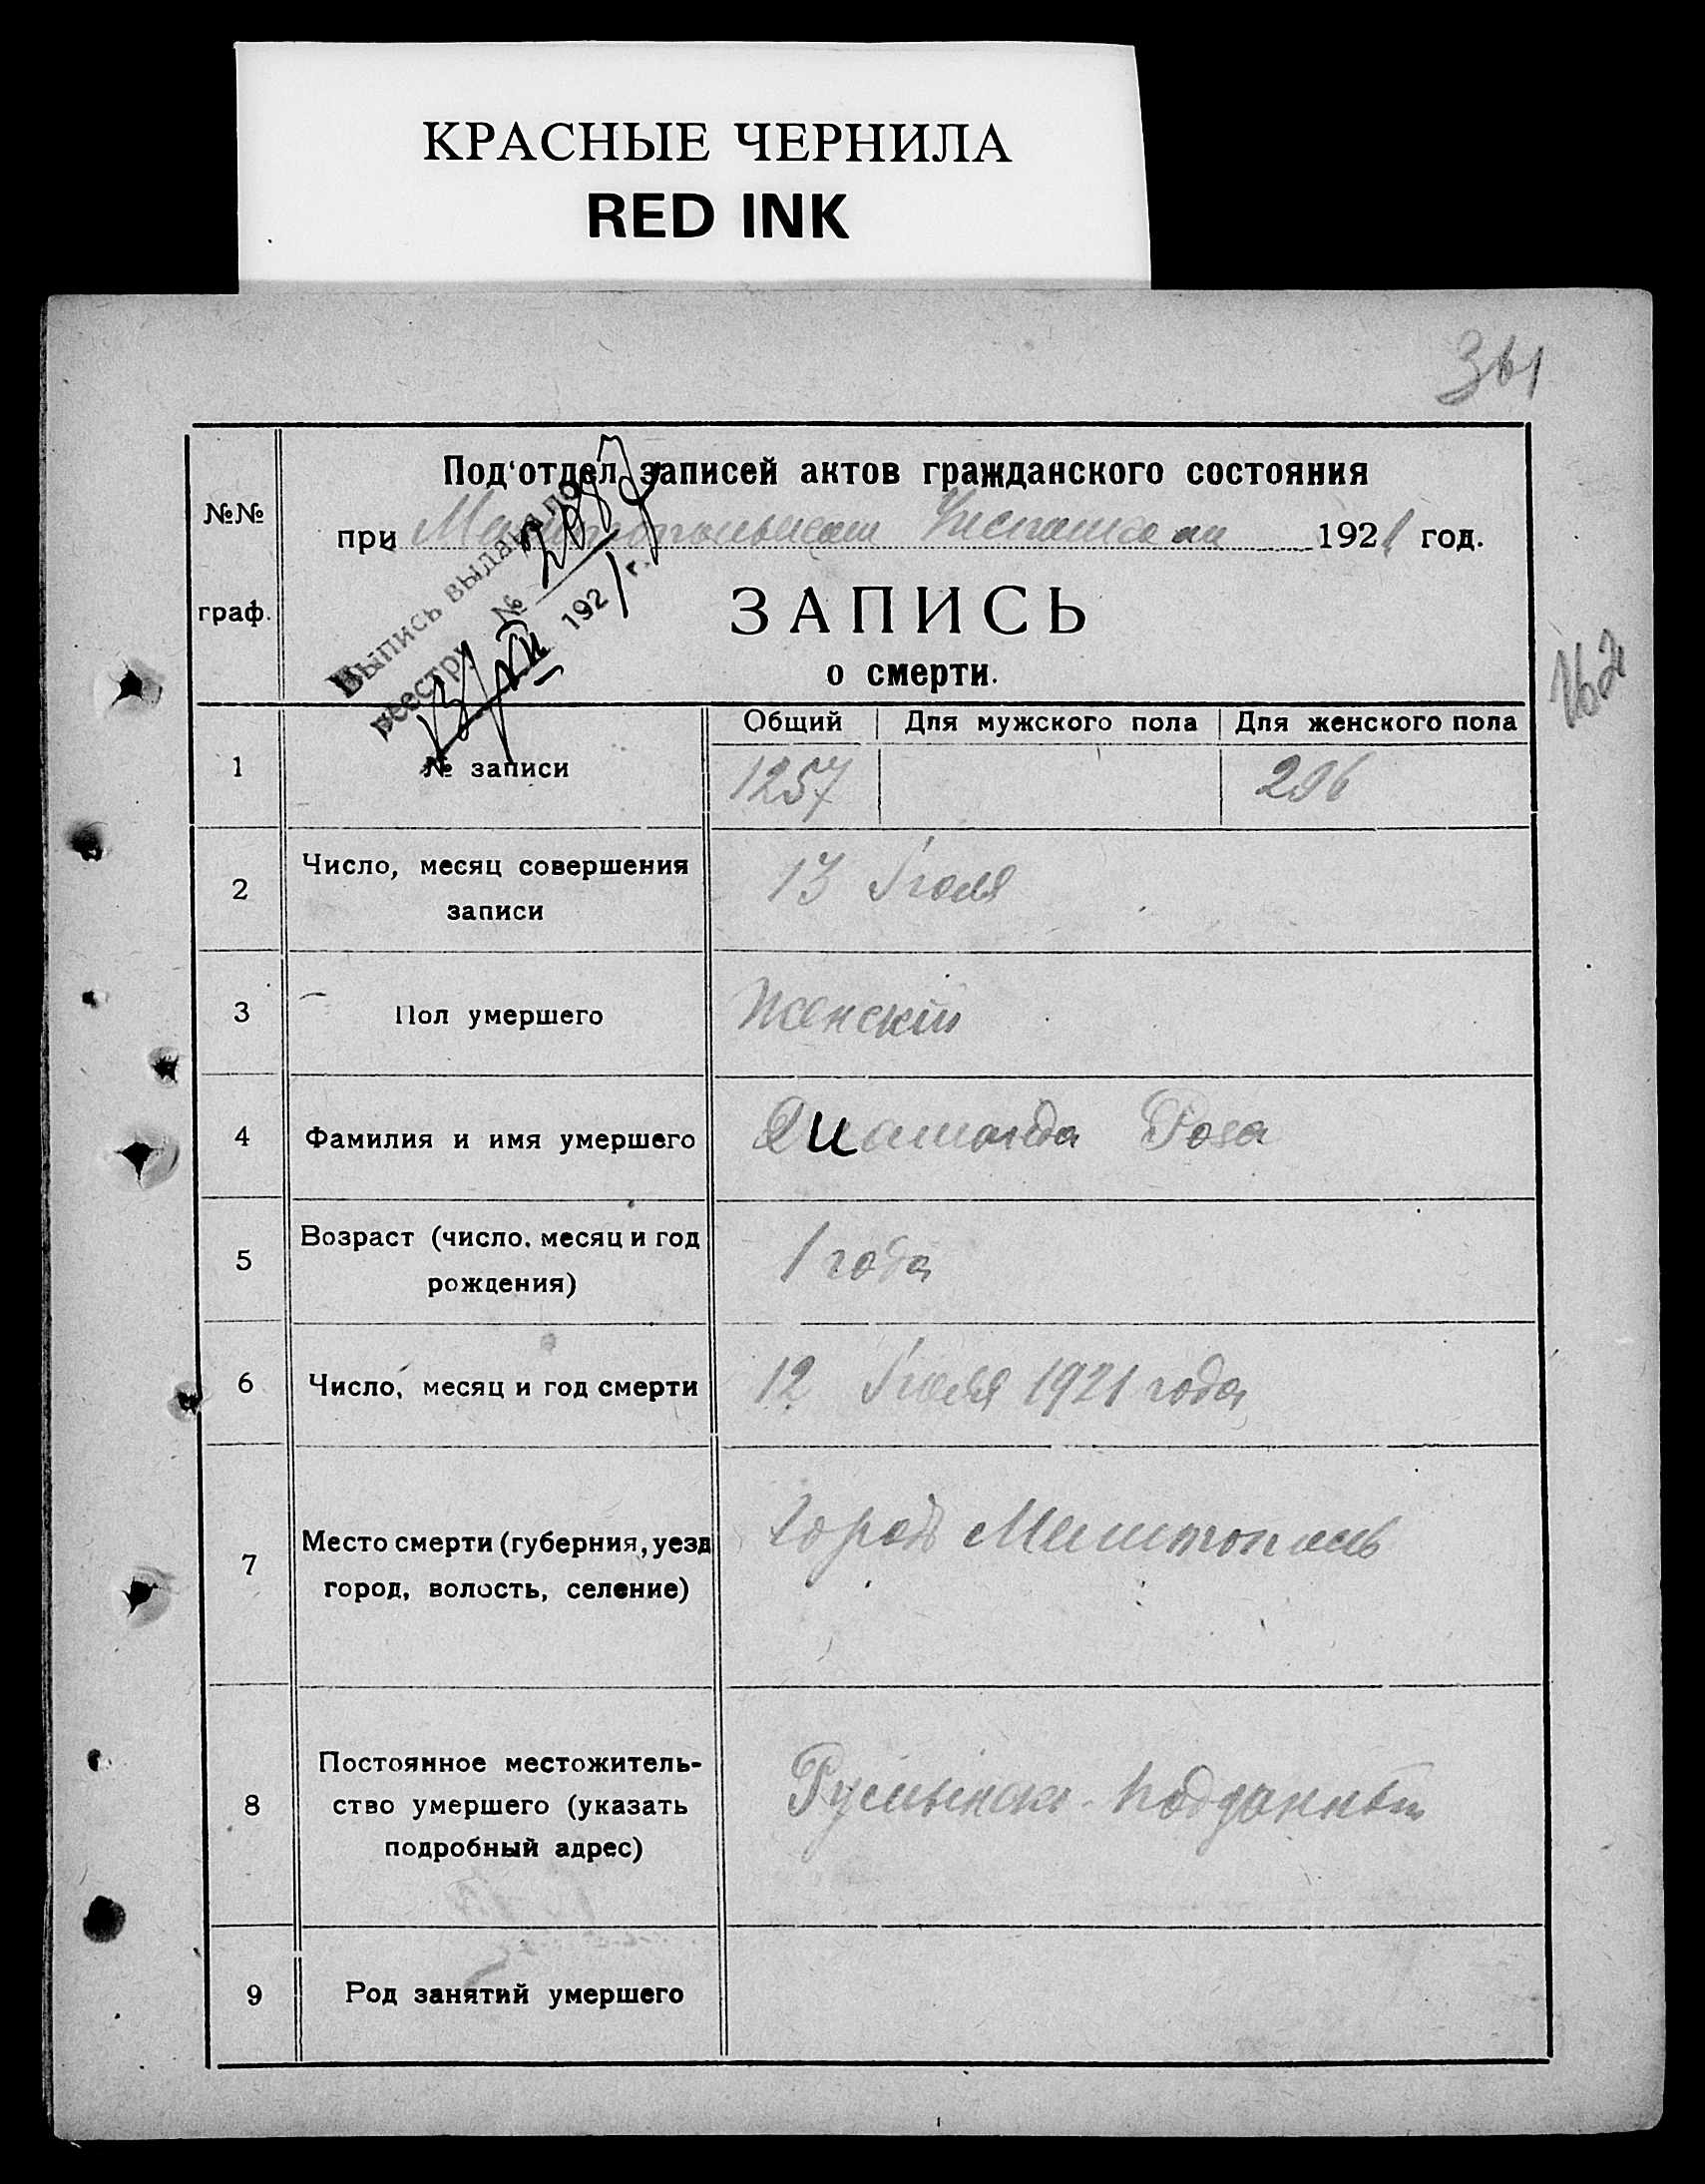 КРАСНЫЕ ЧЕРНИЛА
RED INK
361
Под'отдел записей актов гражданского состояния
№№
при Мелитопольском Уисполкоме 1921 год.
Выпись выдана по
реестру №
1921 г.
граф.
ЗАПИСЬ
о смерти.
162
Общий Для мужского пола Для женского пола
1 № записи 1257 296
2 Число, месяц совершения записи 13 Июля
3 Пол умершего Женский
4 Фамилия и имя умершего Диамонда Роза
5 Возраст (число, месяц и год рождения) 1 года
6 Число, месяц и год смерти 12 Июля 1921 года
7 Место смерти (губерния, уезд город, волость, селение) город Мелитополь
8 Постоянное местожитель-
ство умершего (указать подробный адрес) Румынск. подданный
9 Род занятий умершего